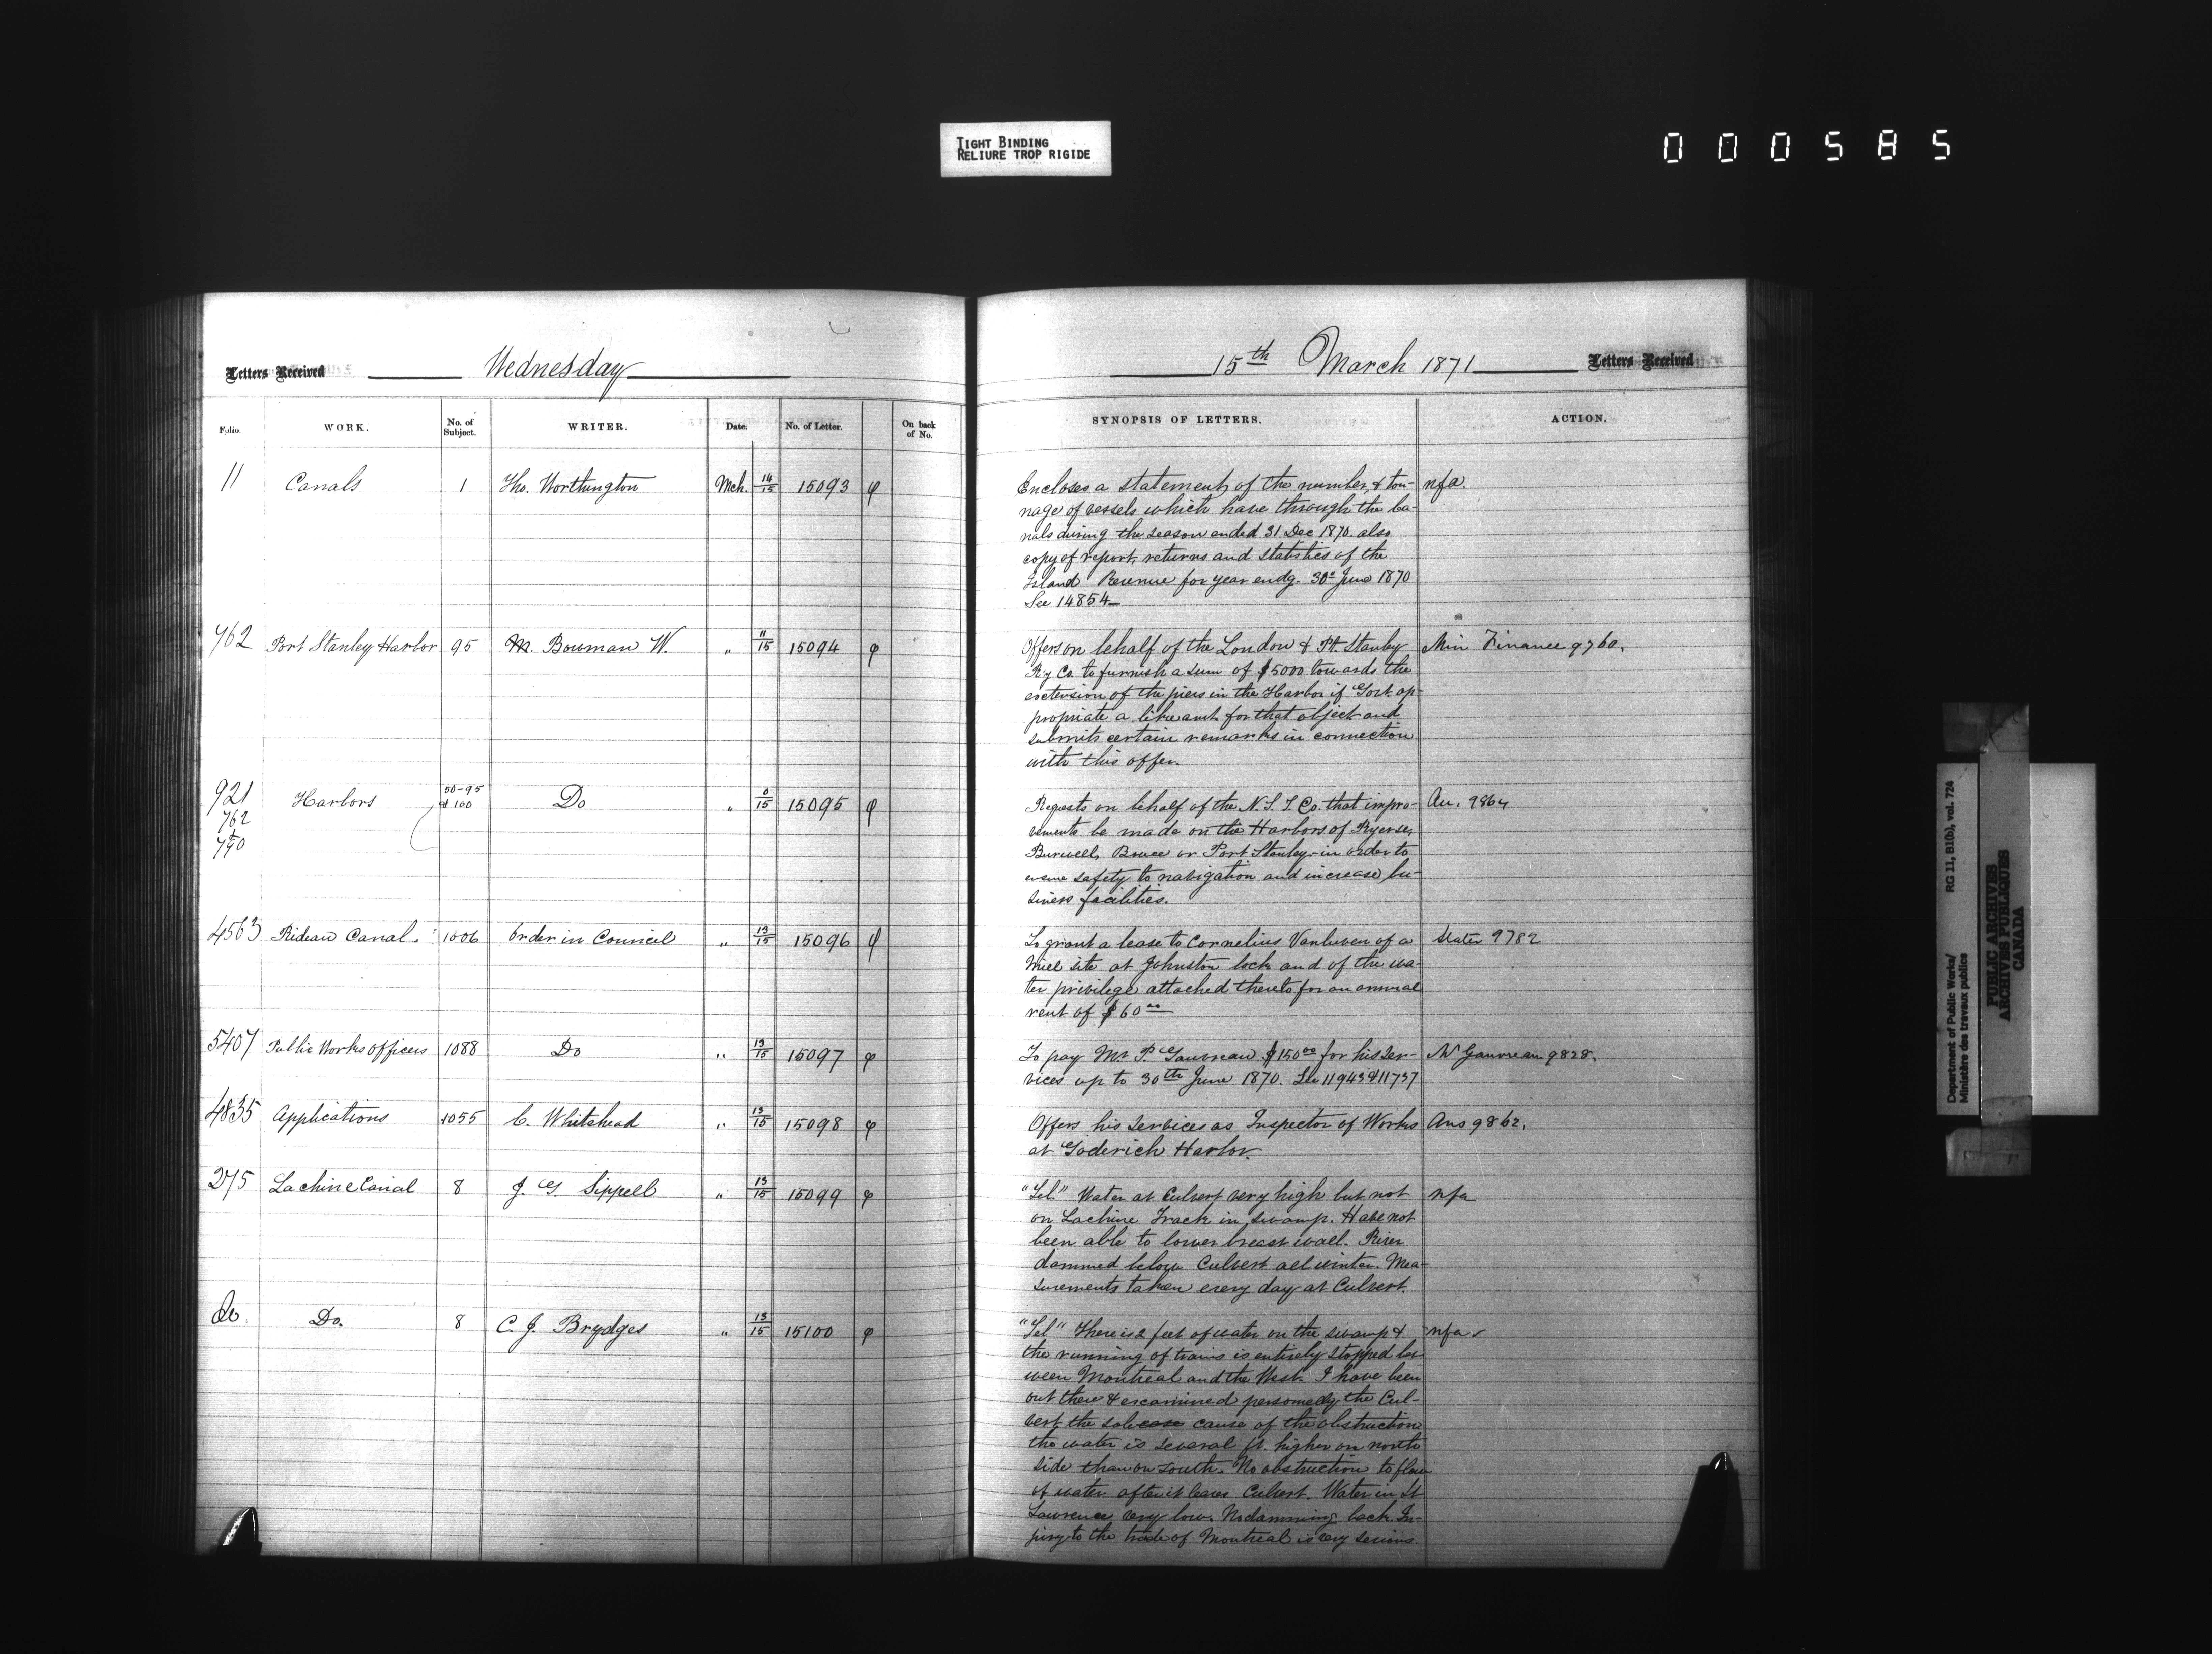 TIGHT BINDING
RELIURE TROP RIGIDE
000585
Letters Received Wednesday
15th March 1871 Letters Received
Folio. WORK. No. of Subject. WRITER. Date. No. of Letter. On back of No.
SYNOPSIS OF LETTERS. ACTION.
11 Canals 1 Tho. Worthington Mch. 14/15 15093 φ
Encloses a statement of the number & ton- nfa.
nage of vessels which have through the ca-
nals during the season ended 31 Dec 1870. also
copy of report, returns and statistics of the
Inland Revenue for year endg. 30th June 1870
See 14854
762 Port Stanley Harbor 95 M. Bowman W. " 11/15 15094 φ
Offers on behalf of the London & Pt. Stanley Min Finance 9760.
Ry Co. to furnish a sum of $5000 towards the
extension of the piers in the Harbor if Govt. ap-
propriate a like amt. for that object and
submits certain remarks in connection
with this offer.
921 Harbors 50-95 & 100 Do " 0/15 15095 φ
762
790
Requests on behalf of the N.S.S. Co. that impro- An. 9864
vements be made on the Harbors of Ryerse,
Burwell, Bruce or Port Stanley in order to
ensure safety to navigation and increase bu-
siness facilities.
4563 Rideau Canal 1006 Order in Council " 13/15 15096 φ
To grant a lease to Cornelius Vanluven of a Slater 9782
Mill site at Johnston lock and of the wa-
ter privilege attached thereto for an annual
rent of $60.00
5407 Public Works officers 1088 Do " 13/15 15097 φ
To pay Mr P. Gauvreau $150.00 for his Ser- Mr Gauvreau 9828.
vices up to 30th June 1870. See 11943 & 11737
4835 Applications 1055 C. Whitehead " 13/15 15098 φ
Offers his Services as Inspector of Works Ans 9862.
at Goderich Harbor.
275 Lachine Canal 8 J. G. Sippell " 13/15 15099 φ
"Tel." Water at Culvert very high but not nfa
on Lachine Track in swamp. Have not
been able to lower breast wall. River
dammed below Culvert all winter. Mea-
surements taken every day at Culvert.
Do. Do. 8 C. J. Brydges " 13/15 15100 φ
"Tel" There is 2 feet of water on the swamp & nfa
the running of trains is entirely stopped bet-
ween Montreal and the West. I have been
out there & examined personally the Cul-
vert the sole case cause of the obstruction
the water is several ft. higher on north
side than on south. No obstruction to flow
of water after it leaves Culvert. Water in St
Lawrence very low. No damming back. In-
jury to the trade of Montreal is very serious.
Department of Public Works/ RG 11, B1(b), vol. 724
Ministère des travaux publics
PUBLIC ARCHIVES
ARCHIVES PUBLIQUES
CANADA